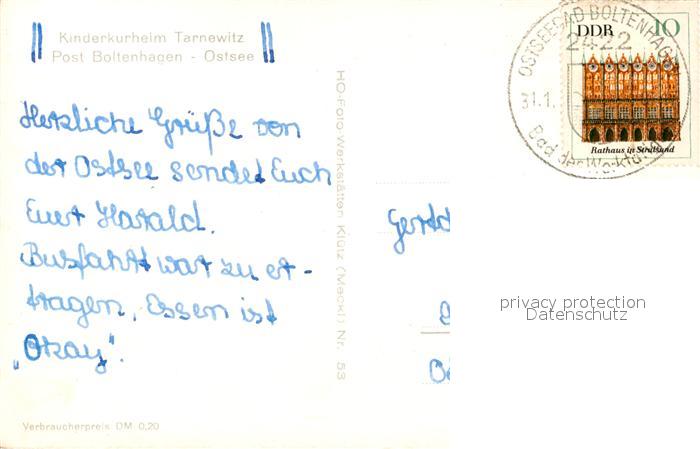 Kinderkurheim Tarnewitz
Post Boltenhagen - Ostsee
Herzliche Grüße von
der Ostsee sendet Euch
Euer Harald.
Busfahrt war zu er-
tragen, Essen ist
„Okay".
Verbraucherpreis DM 0,20
HO-Foto-Werkstätten Klütz (Meckl) Nr. 53
OSTSEEBAD BOLTENHAGEN
2422
31.1.
Bad der Werktä
DDR 10
Rathaus in Stralsund
privacy protection
Datenschutz